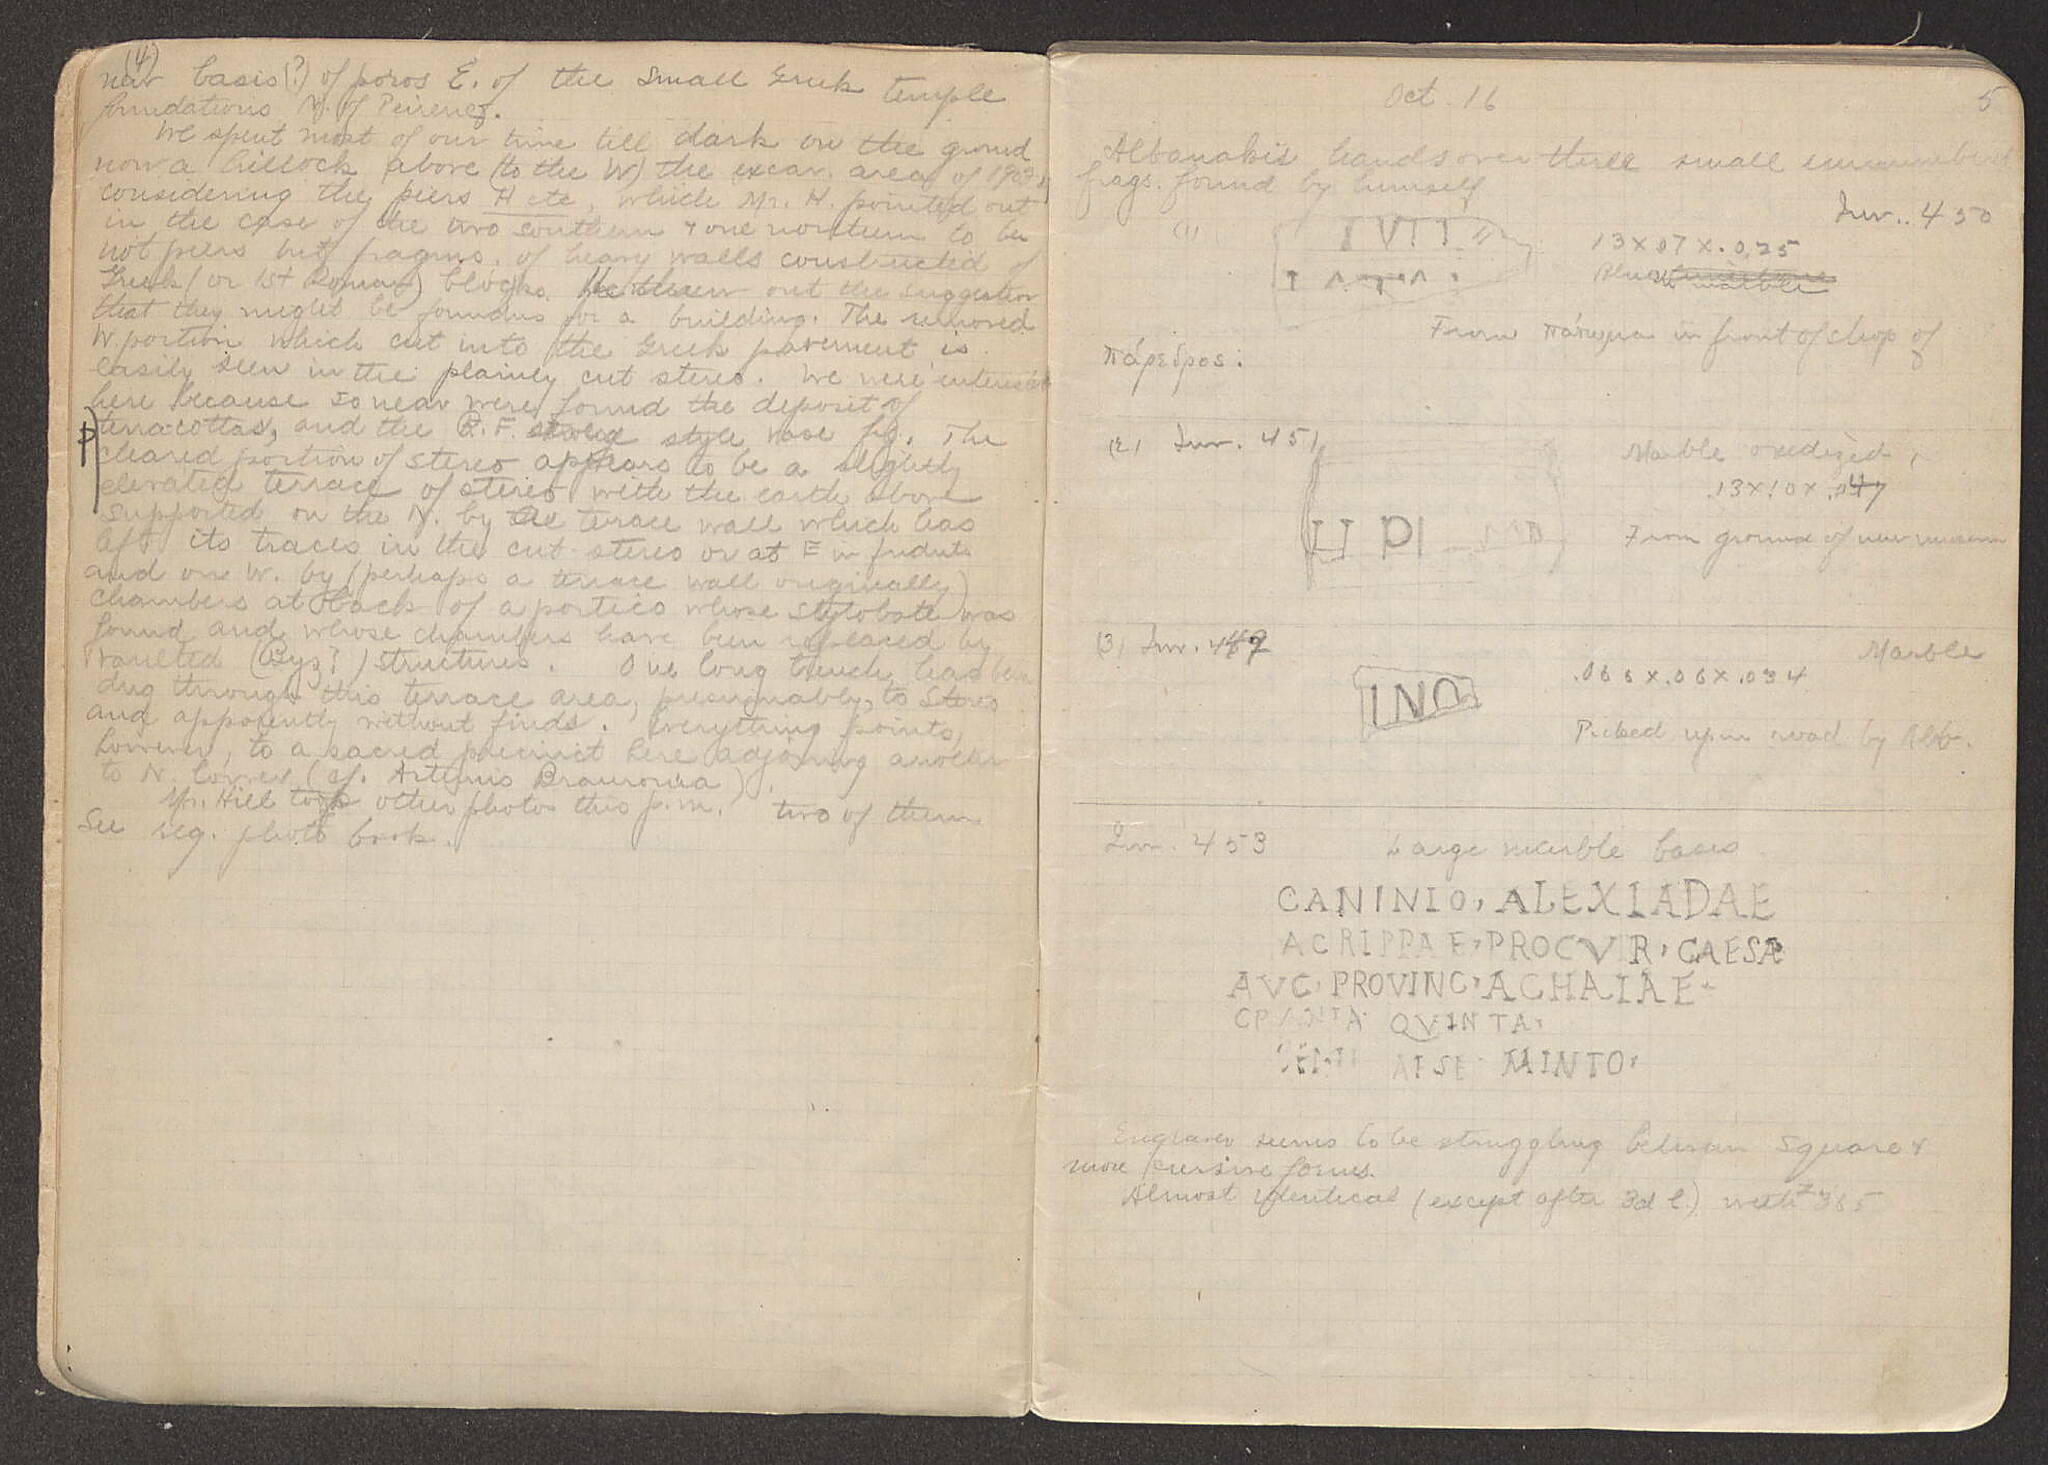 (4)
near basis (?) of poros E. of the small Greek temple
foundations N. of Peirene.
We spent most of our time till dark on the ground
now a hillock above (to the W) the excav. area of 1903
considering the piers H etc, which Mr. H. pointed out
in the case of the two southern & one northern to be
not piers but fragms. of heavy walls constructed of
Greek (or 1st Roman) blocks. He threw out the suggestion
that they might be foundns for a building. The removed
W. portion which cut into the Greek pavement is
easily seen in the plainly cut stereo. We were interested
here because so near were found the deposit of
terra-cottas, and the R.F. style vase fig. The
cleared portion of stereo appears to be a slightly
elevated terrace of stereo with the earth above
supported on the N. by a terrace wall which has
left its traces in the cut stereo or at E
and on W. by (perhaps a terrace wall originally)
chambers at back of a portico whose stylobate was
found and whose chambers have been replaced by
vaulted (Byz?) structures. One long trench has been
dug through this terrace area, presumably, to stereo
and apparently without finds. Everything points,
however, to a sacred precinct here adjoining another
to N. lower (cf. Artemis Brauronia).
Mr. Hill took other photos this p.m. two of them
See neg. photo book.
Oct. 16
5
Albanakis hands over three small
frags. found by himself
Inv. 450
(1)
13 x .07 x .025
marble
From πάτωμα in front of shop of
πάρεδρος.
(2) Inv. 451
Marble oxedized
.13 x .10 x .047
H PI
From ground of new museum
(3) Inv. 449
Marble
INO
.065 x .06 x .034
Picked up in road by Alb.
Inv. 453 Large marble basis
CANINIO, ALEXIADAE
AGRIPPAE, PROCVR, CAESAR
AVG, PROVINC, ACHAIAE
QVINTA,
AISE MINTO,
Engraver seems to be struggling between square &
more cursive forms.
Almost identical (except after 3d l.) with # 365